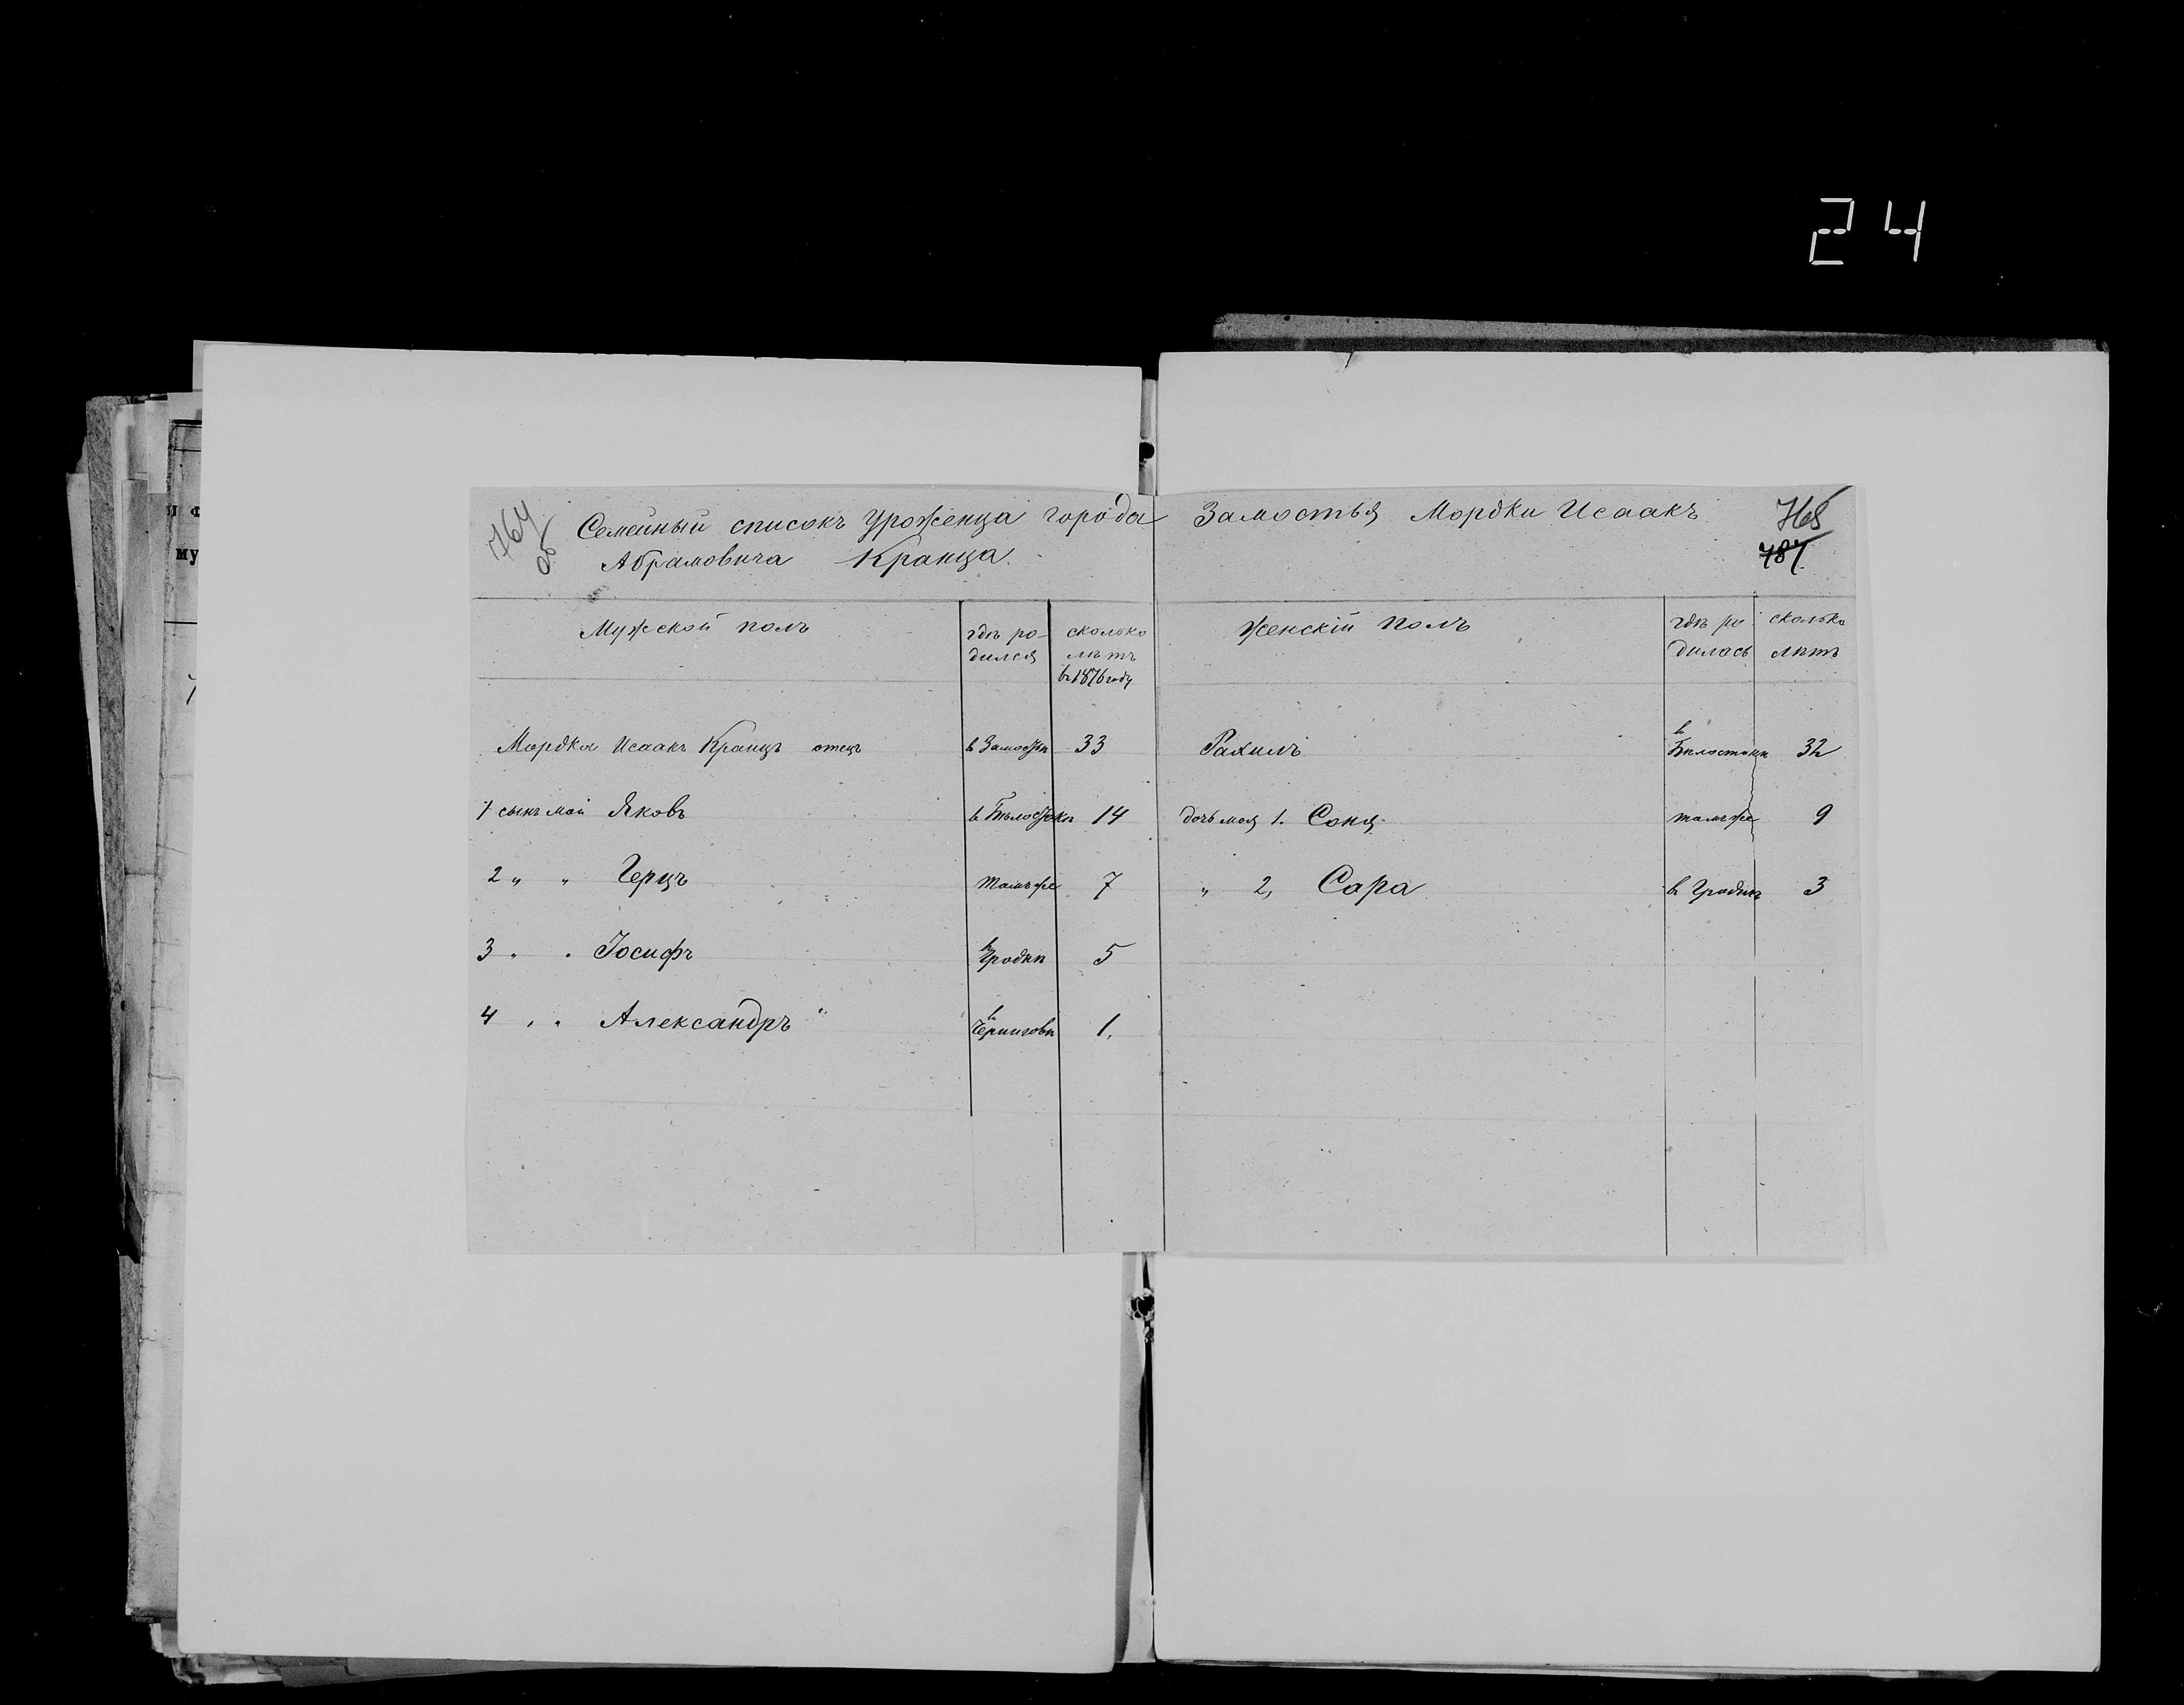 24
764
об
Семейный списокъ уроженца города Замостья Мордки Исаакъ
765
787
Абрамовича Кранца.
Мужской полъ
гдѣ ро-
дился
сколько
лѣтъ
въ 1876 году
Женскій полъ
гдѣ ро
дилась
сколько
лѣтъ
Мордка Исаакъ Кранцъ отецъ в Замостьи 33 Рахиль в Бѣлостокѣ 32
1 сынъ мой Яковъ в Бѣлостокѣ 14 дочь моя 1. Соня тамъ же 9
2 " " Герцъ тамъ же 7 " 2, Сара в Гроднѣ 3
3 " " Іосифъ в Гроднѣ 5
4 " " Александръ " в Черниговѣ 1.
му